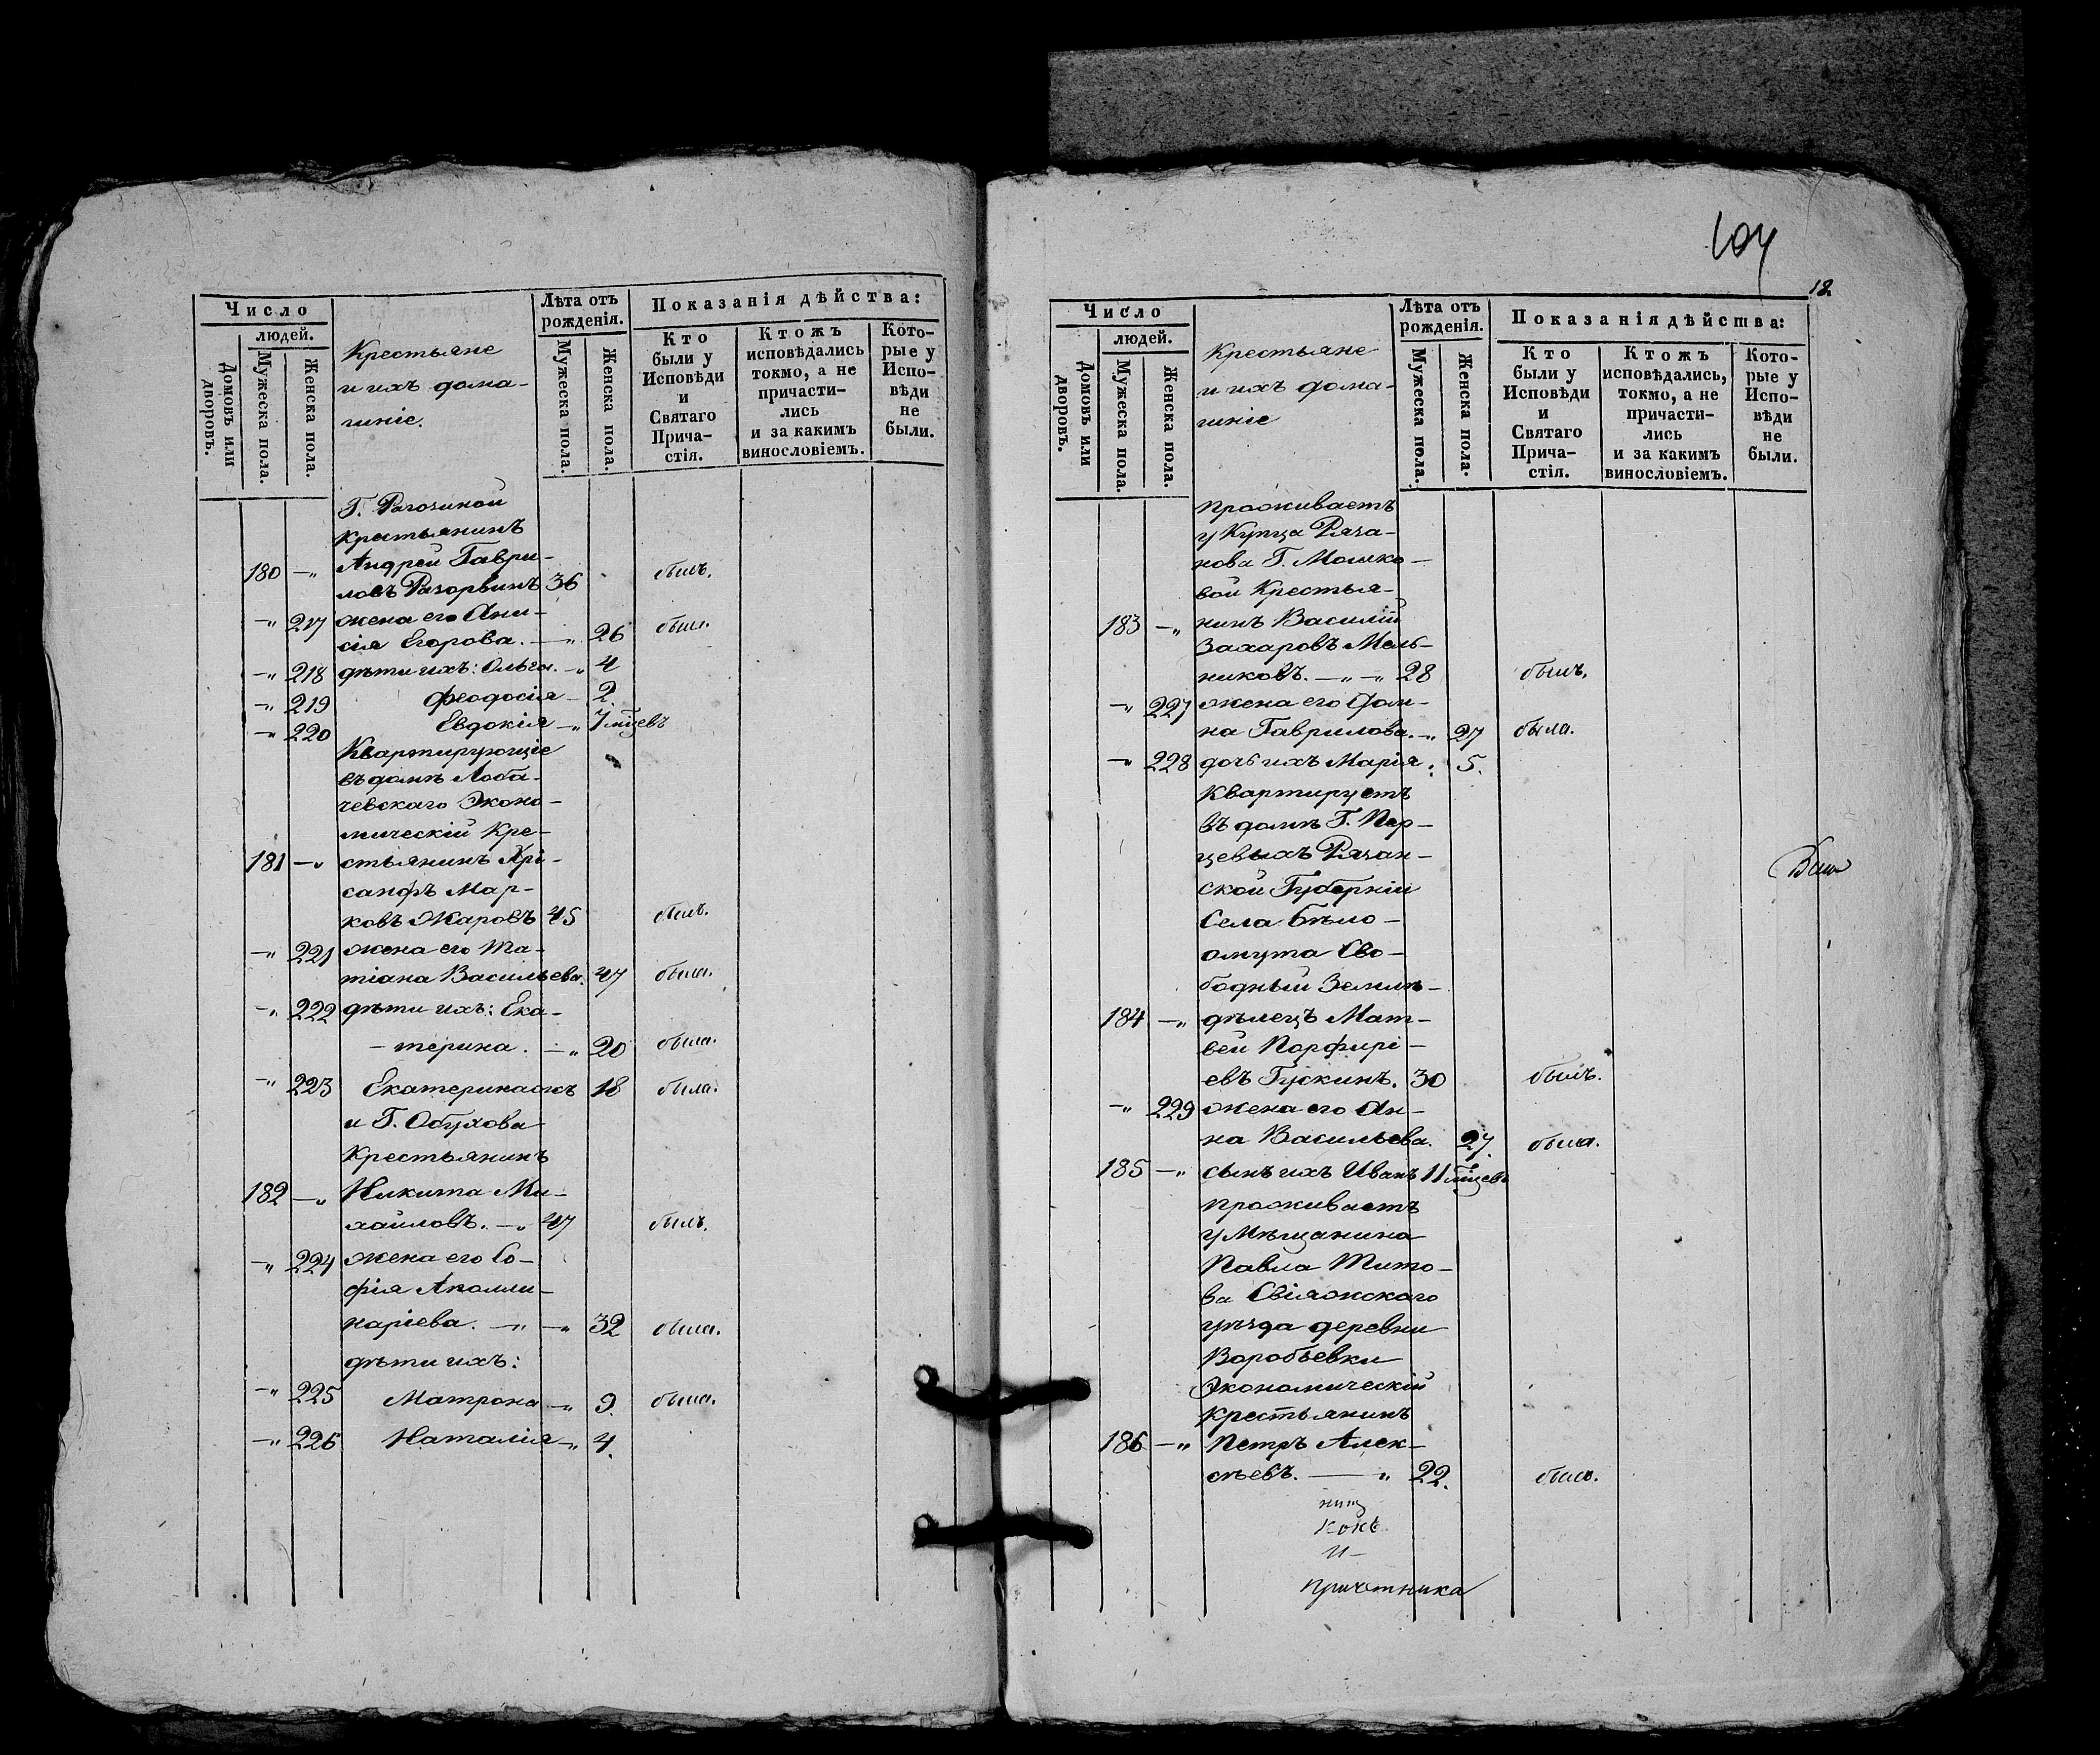 Число
людей.
Домовъ или дворовъ.
Мужеска пола.
Женска пола.
Крестьяне
и ихъ дома-
шніе.
Лѣта отъ
рожденія.
Мужеска пола.
Женска пола.
Показанія дѣйства:
Кто
были у
Исповѣди
и
Святаго
Прича-
стія.
Ктожъ
исповѣдались
токмо, а не
причасти-
лись
и за какимъ
винословіемъ.
Кото-
рые у
Испо-
вѣди
не
были.
Г. Рагозиной
Крестьянинъ
180 —„ Андрей Гаври-
ловъ Разорвинъ 36 былъ.
—„ 217 жена его Ани-
сія Егорова. —„ 26 была.
—„ 218 дѣти ихъ: Ольга. —„ 4
—„ 219 Феодосія — 2.
—„ 220 Евдокія —„ 7 мѣсцевъ
Квартирующіе
въ домѣ Лоба-
чевскаго Эконо-
мическій Кре-
181 —„ стьянинъ Хрі-
санфъ Мар-
ковъ Жаровъ 45 былъ.
—„ 221 жена его Та-
тіана Васильева. 47 была.
—„ 222 дѣти ихъ: Ека-
– терина. —„ 20 была.
—„ 223 Екатеринажъ 18 была.
и Г. Обухова
Крестьянинъ
182 —„ Никита Ми-
хайловъ. —„ 47 былъ.
—„ 224 жена его Со-
фія Аполли-
наріева. —„ —„ 32 была.
дѣти ихъ:
—„ 225 Матрона —„ 9. была.
—„ 226 Наталія —„ 4.
104
12
Число
людей.
Домовъ или дворовъ.
Мужеска пола.
Женска пола.
Крестьяне
и ихъ дома-
шніе
Лѣта отъ
рожденія.
Мужеска пола.
Женска пола.
Показанія дѣйства:
Кто
были у
Исповѣди
и
Святаго
Прича-
стія.
Ктожъ
исповѣдались,
токмо, а не
причасти-
лись
и за какимъ
винословіемъ.
Кото-
рые у
Испо-
вѣди
не
были.
проживаетъ
у Купца Ряза-
нова Г. Мошко-
вой Крестья-
183 —„ нинъ Василій
Захаровъ Мель-
никовъ. —„ —„ 28 былъ.
—„ 227 жена его Дом-
на Гаврилова. —„ 27 была.
—„ 228 дочь ихъ Марія: 5.
Квартируетъ
въ домѣ Г. Пер-
цевыхъ Рязан-
ской Губерніи
Села Бѣло-
омута Сво-
бодный Землѣ-
184 —„ дѣлецъ Мат-
вей Порфирі-
евъ Гускинъ. 30 былъ.
—„ 229 жена его Ан-
на Васильева. 27. была.
185 —„ сынъ ихъ Иванъ 11 мѣсцевъ
проживаетъ
у Мѣщанина
Павла Тито-
ва Свіяжскаго
уѣзда деревни
Воробьевки
Экономическій
Крестьянинъ
186 —„ Петръ Алек-
сѣевъ. —„ 22. былъ.
и
причетника